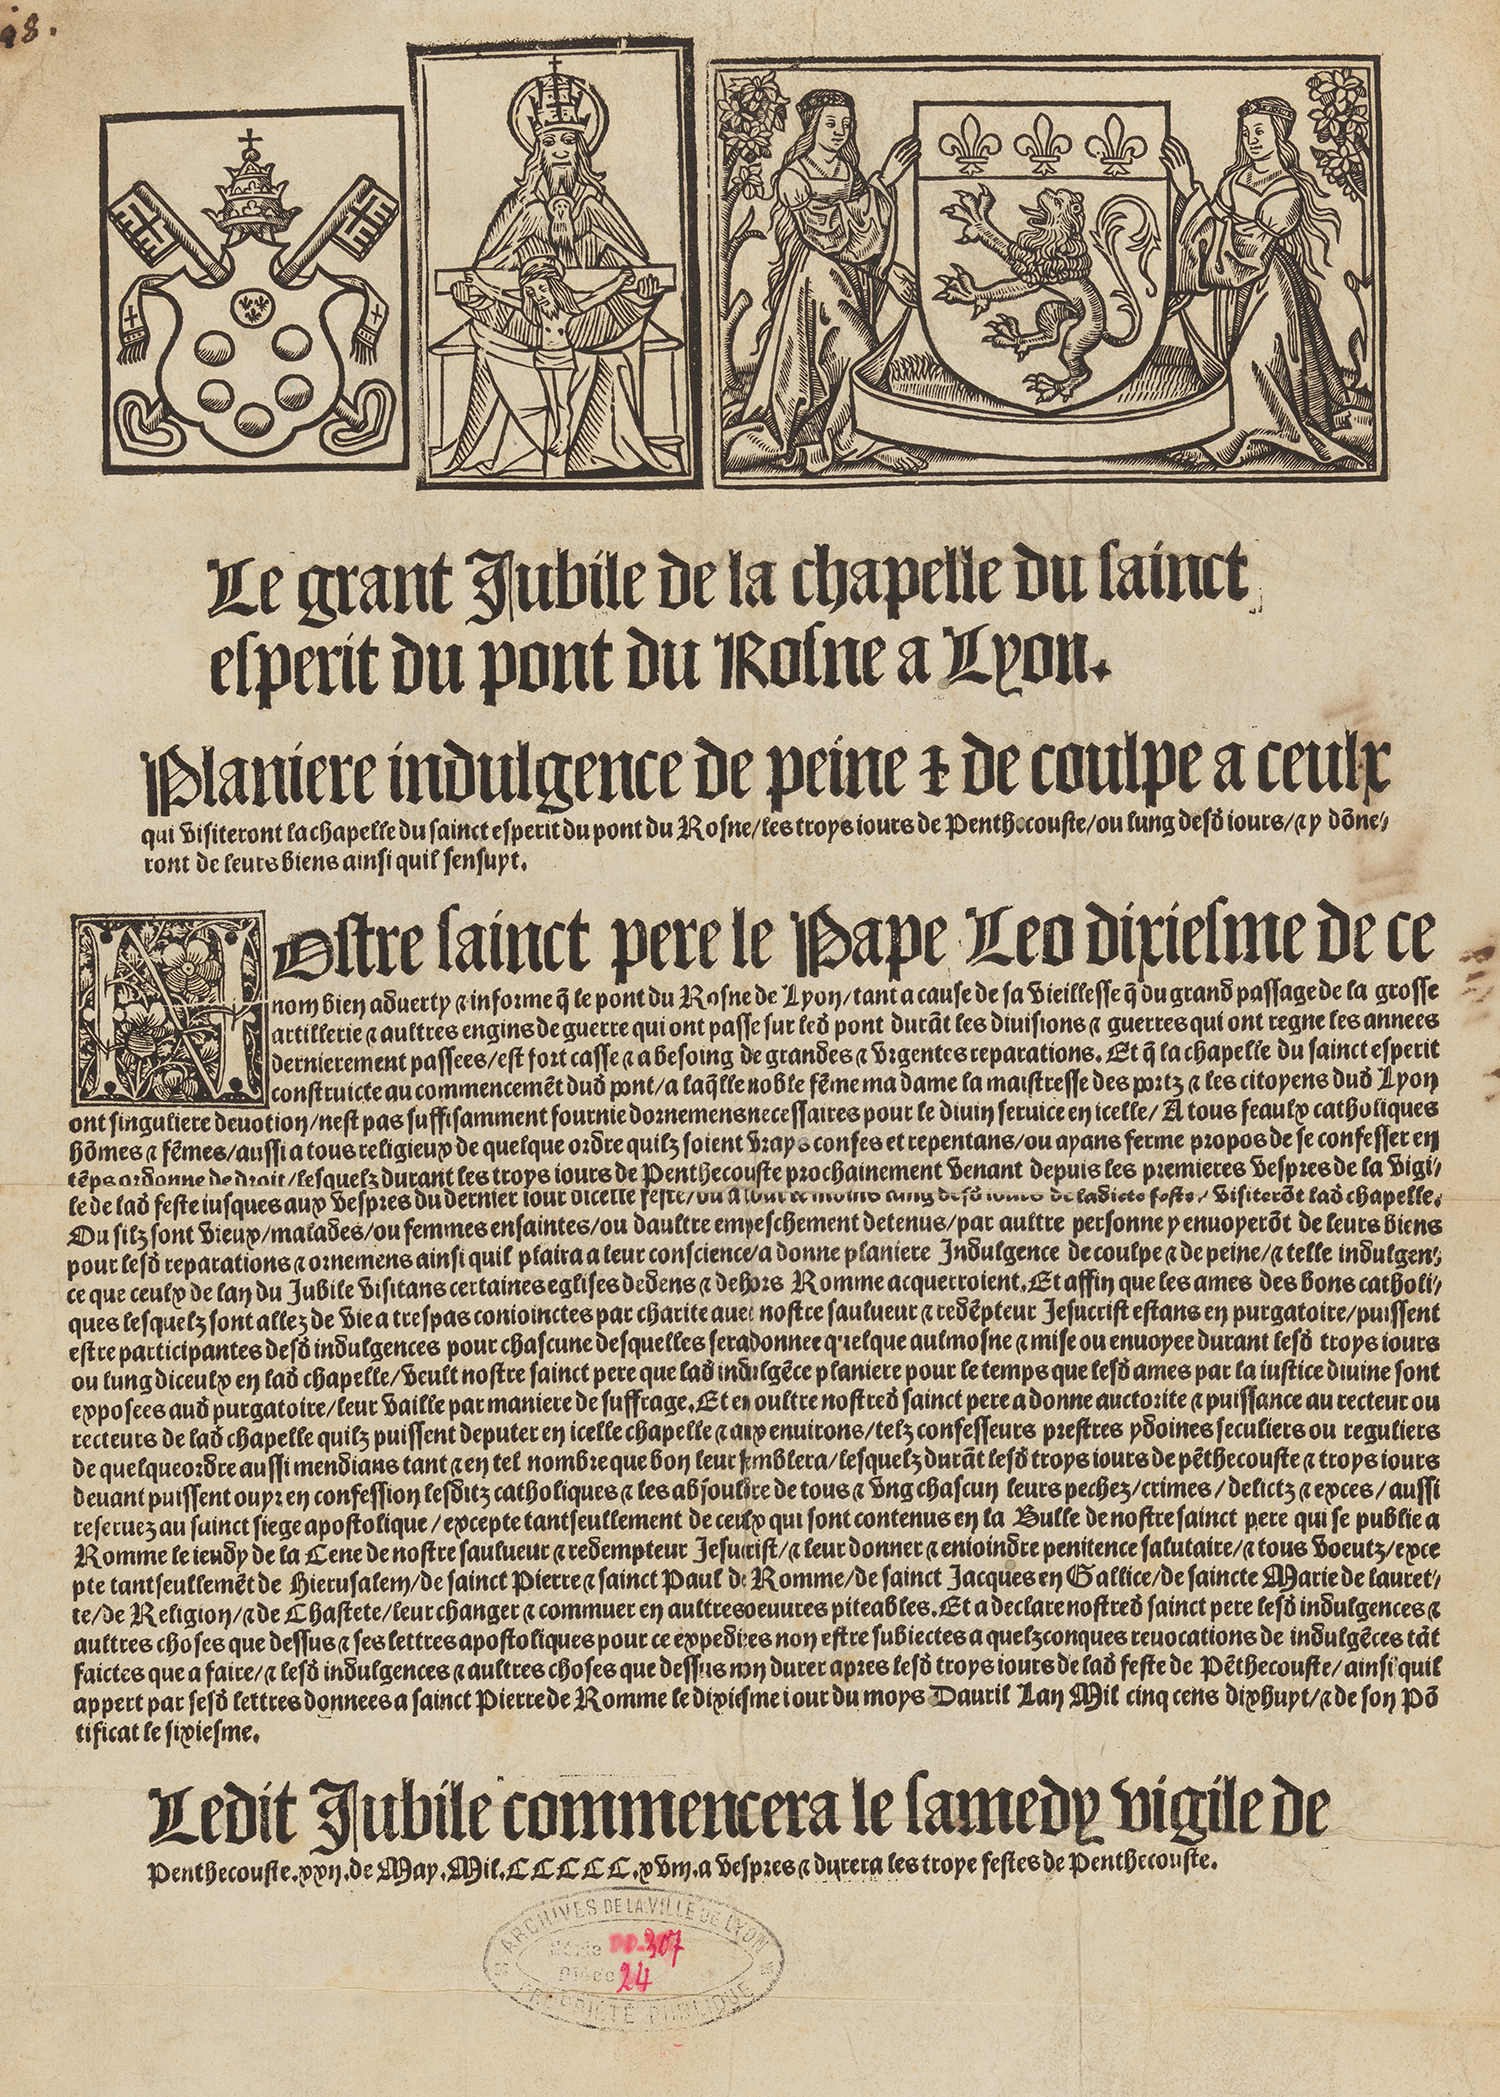 98.
Le grant Jubile de la chapelle du sainct
esperit du pont du Rosne a Lyon.
Planiere indulgence de peine ⁊ de coulpe a ceulx
qui visiteront la chapelle du sainct esperit du pont du Rosne/les troys iours de Penthecouste/ou lung desd̄ iours/⁊ y dōne⸗
ront de leurs biens ainsi quil sensuyt.
NOstre sainct pere le Pape Leo dixiesme de ce
nom bien aduerty ⁊ informe q̄ le pont du Rosne de Lyon/tant a cause de sa vieillesse q̄ du grand passage de la grosse
artillerie ⁊ aultres engins de guerre qui ont passe sur led̄ pont durāt les diuisions ⁊ guerres qui ont regne les annees
dernierement passees/est fort casse ⁊ a besoing de grandes ⁊ vrgentes reparations. Et q̄ la chapelle du sainct esperit
construicte au commencemēt dud̄ pont/a laq̄lle noble fēme ma dame la maistresse des portz ⁊ les citoyens dud̄ Lyon
ont singuliere deuotion/nest pas suffisamment fournie dornemens necessaires pour le diuin seruice en icelle/A tous feaulx catholiques
hōmes ⁊ fēmes/aussi a tous religieux de quelque ordre quilz soient vrays confes et repentans/ou ayans ferme propos de se confesser en
tēps ordonne de droit/lesquelz durant les troys iours de Penthecouste prochainement venant depuis les premieres vespres de la vigi⸗
le de lad̄ feste iusques aux vespres du dernier iour dicelle feste/ou a tout le moins lung desd̄ iours de ladicte feste/visiterōt lad̄ chapelle.
Ou silz sont vieux/malades/ou femmes ensaintes/ou daultre empeschement detenus/par aultre personne y enuoyerōt de leurs biens
pour lesd̄ reparations ⁊ ornemens ainsi quil plaira a leur conscience/a donne planiere Indulgence de coulpe ⁊ de peine/⁊ telle indulgen⸗
ce que ceulx de lan du Jubile visitans certaines eglises dedens ⁊ dehors Romme acquerroient. Et affin que les ames des bons catholi⸗
ques lesquelz sont allez de vie a trespas conioinctes par charite auec nostre saulueur ⁊ redēpteur Jesucrist estans en purgatoire/puissent
estre participantes desd̄ indulgences pour chascune desquelles sera donnee quelque aulmosne ⁊ mise ou enuoyee durant lesd̄ troys iours
ou lung diceulx en lad̄ chapelle/veult nostre sainct pere que lad̄ indulgēce planiere pour le temps que lesd̄ ames par la iustice diuine sont
exposees aud̄ purgatoire/leur vaille par maniere de suffrage. Et en oultre nostred̄ sainct pere a donne auctorite ⁊ puissance au recteur ou
recteurs de lad̄ chapelle quilz puissent deputer en icelle chapelle ⁊ aux enuirons/telz confesseurs prestres ydoines seculiers ou reguliers
de quelque ordre aussi mendians tant ⁊ en tel nombre que bon leur semblera/lesquelz durāt lesd̄ troys iours de pēthecouste ⁊ troys iours
deuant puissent ouyr en confession lesditz catholiques ⁊ les absouldre de tous ⁊ vng chascun leurs pechez/crimes/delictz ⁊ exces/aussi
reseruez au sainct siege apostolique/excepte tantseullement de ceulx qui sont contenus en la Bulle de nostre sainct pere qui se publie a
Romme le ieudy de la Cene de nostre saulueur ⁊ redempteur Jesucrist/⁊ leur donner ⁊ enioindre penitence salutaire/⁊ tous voeutz/exce
pte tantseullemēt de Hierusalem/de sainct Pierre ⁊ sainct Paul de Romme/de sainct Jacques en Gallice/de saincte Marie de lauret⸗
te/de Religion/⁊ de Chastete/leur changer ⁊ commuer en aultres oeuures piteables. Et a declare nostred̄ sainct pere lesd̄ indulgences ⁊
aultres choses que dessus ⁊ ses lettres apostoliques pour ce expediees non estre subiectes a quelzconques reuocations de indulgēces tāt
faictes que a faire/⁊ lesd̄ indulgences ⁊ aultres choses que dessus non durer apres lesd̄ troys iours de lad̄ feste de Pēthecouste/ainsi quil
appert par sesd̄ lettres donnees a sainct Pierre de Romme le dixiesme iour du moys Dauril Lan Mil cinq cens dixhuyt/⁊ de son Pō
tificat le sixiesme.
Ledit Jubile commencera le samedy vigile de
Penthecouste.xxij.de May.Mil.CCCCC.xviij.a vespres ⁊ durera les troye festes de Penthecouste.
ARCHIVES DE LA VILLE DE LYON
Série DD.307
Pièce 24
PROPRIÉTÉ PUBLIQUE